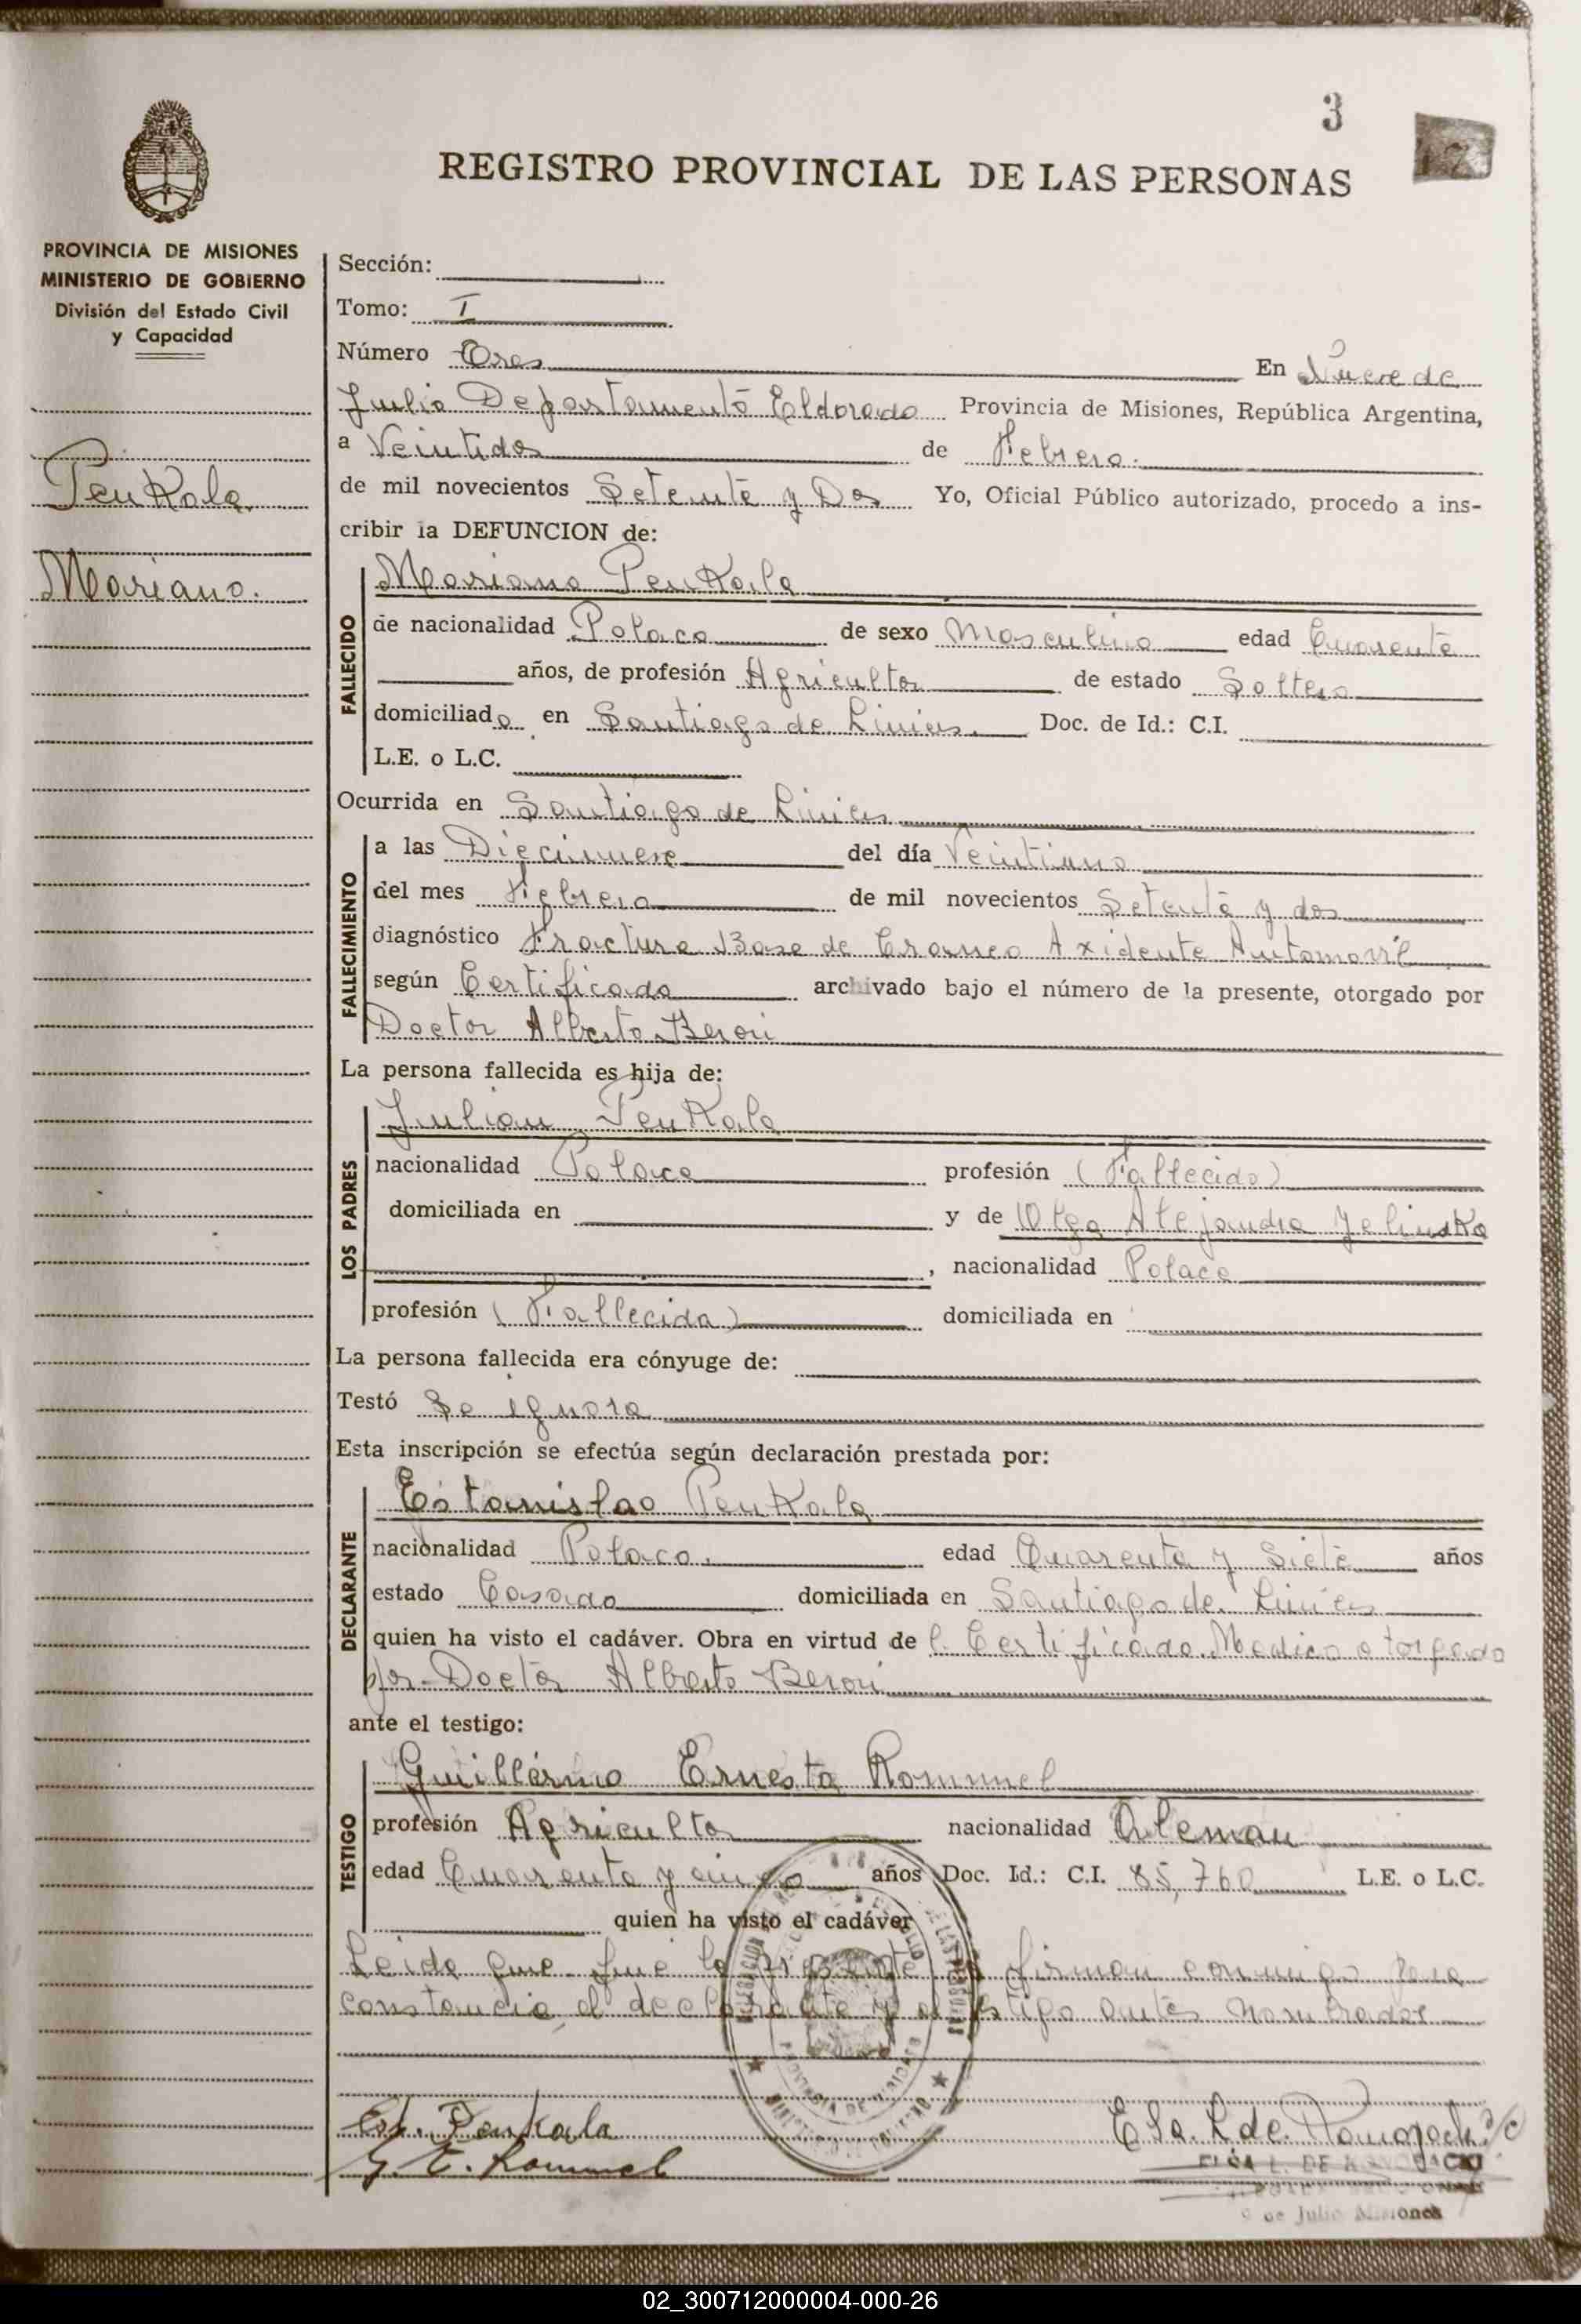 3
REGISTRO PROVINCIAL DE LAS PERSONAS
PROVINCIA DE MISIONES
MINISTERIO DE GOBIERNO
División del Estado Civil
y Capacidad
Penkala
Mariano.
Sección:
Tomo: I
Número Tres En Nueve de
Julio Departamento Eldorado Provincia de Misiones, República Argentina,
a Veintidos de Febrero.
de mil novecientos Setenta y Dos Yo, Oficial Público autorizado, procedo a ins-
cribir la DEFUNCION de:
FALLECIDO
Mariano Penkala
de nacionalidad Polaca de sexo Masculino edad Cuarenta
años, de profesión Agricultor de estado Soltero
domiciliado en Santiago de Liniers. Doc. de Id.: C.I.
L.E. o L.C.
Ocurrida en Santiago de Liniers
FALLECIMIENTO
a las Diecinueve del día Veintiuno
del mes Febrero de mil novecientos Setenta y dos
diagnóstico Fractura Base de Craneo Axidente Automovil
según Certificado archivado bajo el número de la presente, otorgado por
Doctor Alberto
La persona fallecida es hija de:
LOS PADRES
Julian Penkala
nacionalidad Polaca profesión (Fallecido)
domiciliada en y de Olga Alejandra Jelinska
, nacionalidad Polaca
profesión (Fallecida) domiciliada en
La persona fallecida era cónyuge de:
Testó Se ignora
Esta inscripción se efectúa según declaración prestada por:
DECLARANTE
Estanislao Penkala
nacionalidad Polaco. edad Cuarenta y Siete años
estado Casado domiciliada en Santiago de Liniers
quien ha visto el cadáver. Obra en virtud de l Certificado Medico otorgado
por Doctor Alberto
ante el testigo:
TESTIGO
Guillermo Ernesto Rommel
profesión Agricultor nacionalidad Aleman
edad Cuarenta y cinco años Doc. Id.: C.I. 85,760 L.E. o L.C.
quien ha visto el cadáver
Leida que fue la presente firman conmigo para
constancia el declarante y el testigo antes nombrados
Est. Penkala
G. E. Rommel
ELSA L. DE
9 de Julio Misiones
02_300712000004-000-26